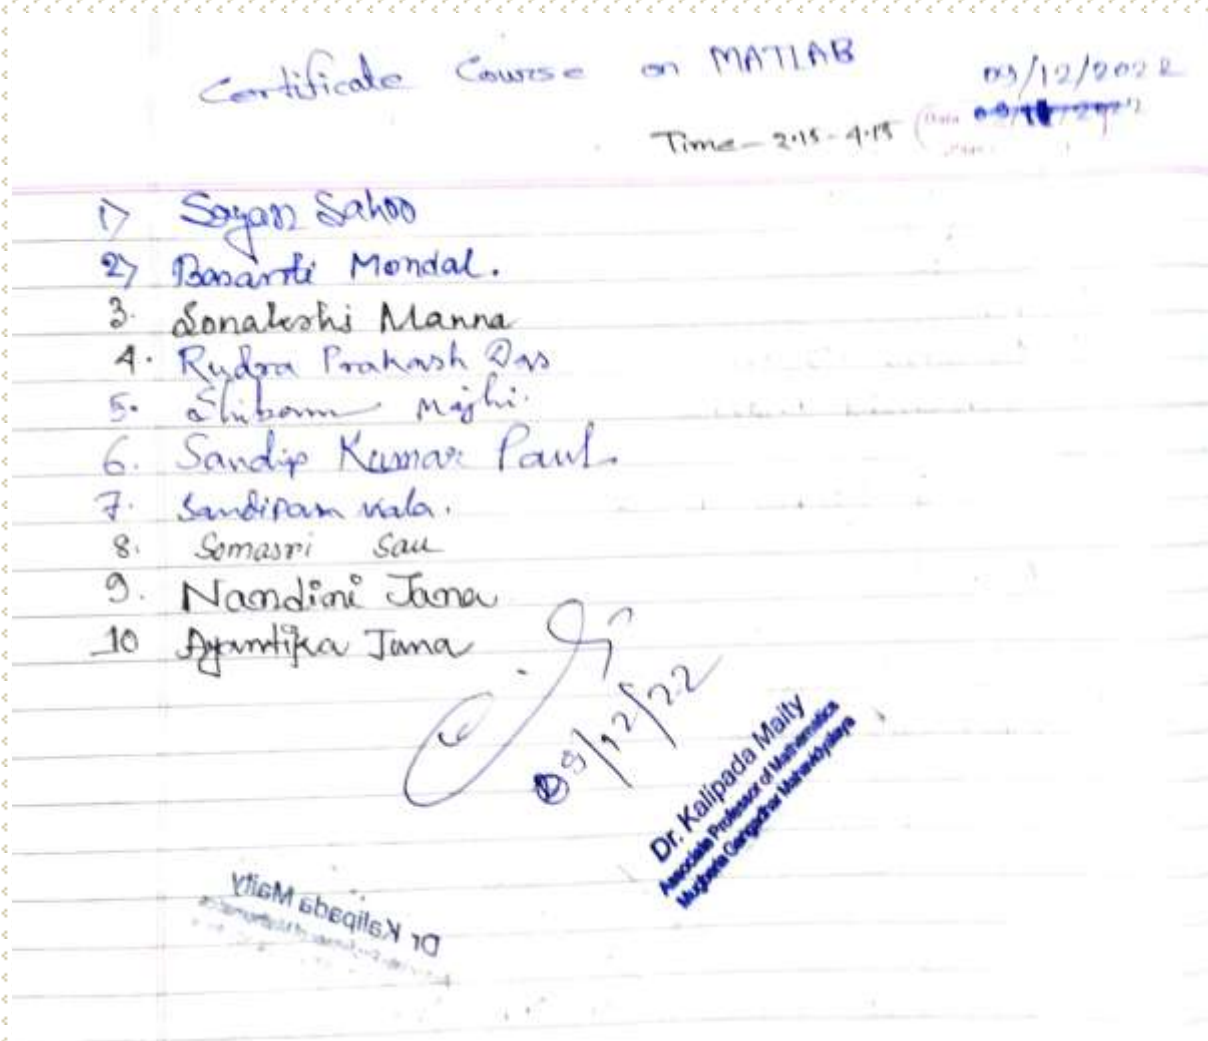 Certificate Course on MATLAB
09/12/2022
Time - 2.15 - 4.15 (Date
1) Sayan Sahoo
2) Basanti Mondal.
3. Sonakshi Manna
4. Rudra Prakash Das
5. Shibam Majhi.
6. Sandip Kumar Paul.
7. Sandipam Kala.
8. Somasri Sau
9. Nandini Jana
10 Ayantika Jana
09/12/22
Dr. Kalipada Maity
Associate Professor of Mathematics
Mugberia Gangadhar Mahavidyalaya
Dr Kalipada Maity